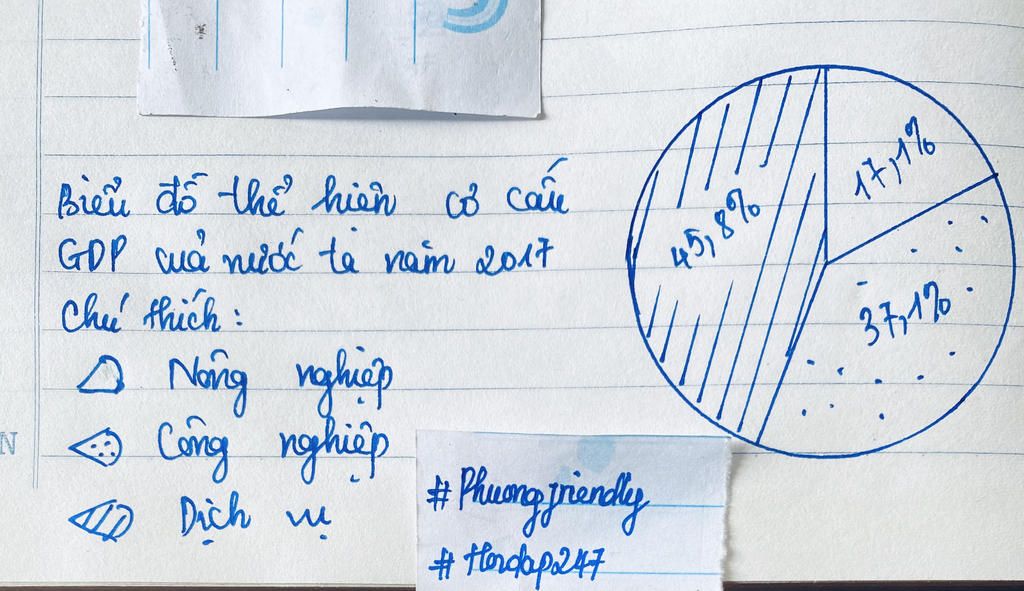 Biểu đồ thể hiên cơ cấu
GDP cuả nước ta năm 2017
Chú thích:
Nông nghiệp
Công nghiệp
Dịch vụ
17,1%
45,8%
37,1%
#Phuongfriendly
#Hoidap247
N